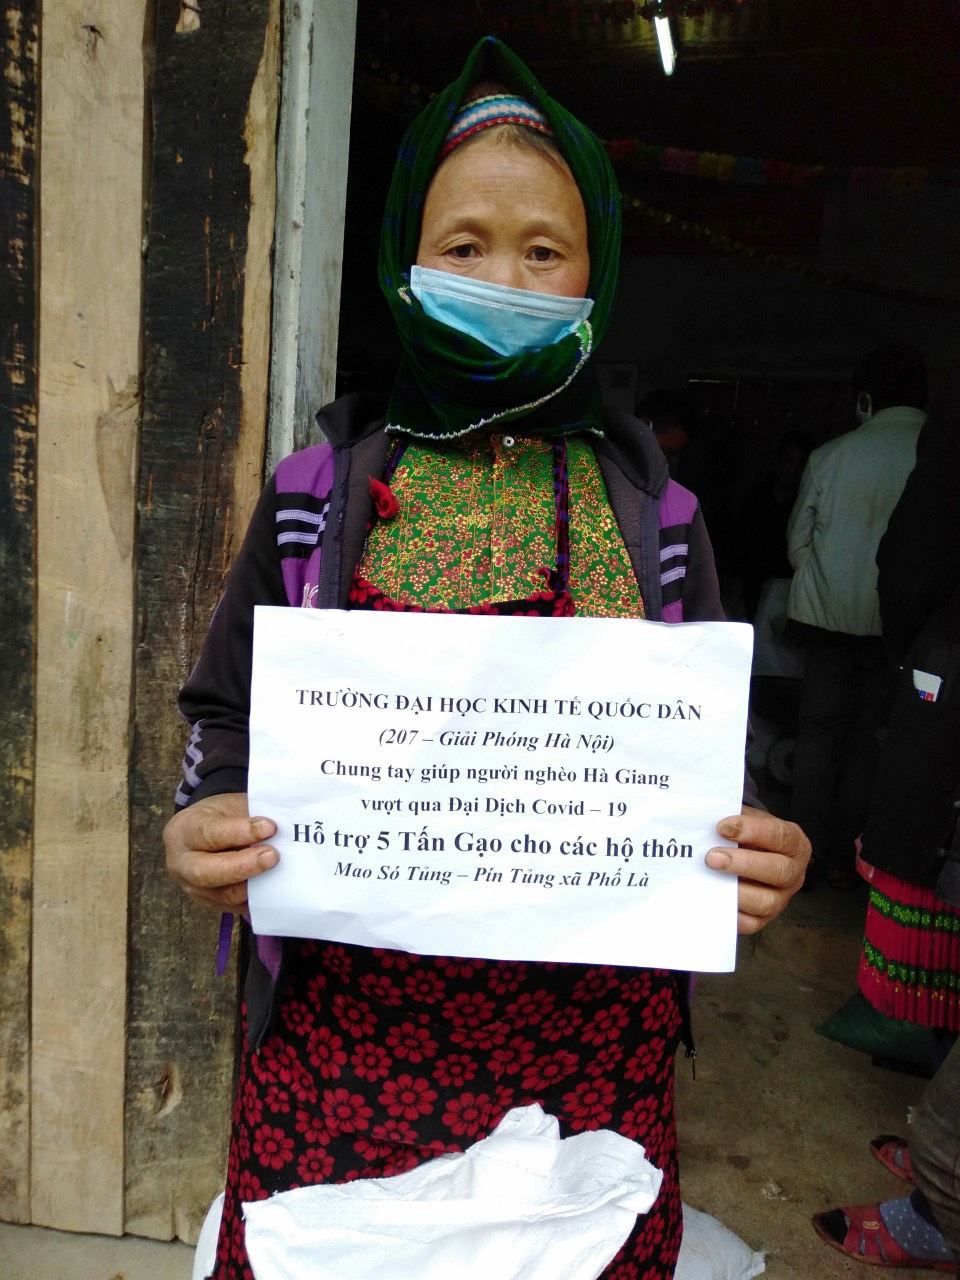 TRƯỜNG ĐẠI HỌC KINH TẾ QUỐC DÂN
(207 – Giải Phóng Hà Nội)
Chung tay giúp người nghèo Hà Giang
vượt qua Đại Dịch Covid – 19
Hỗ trợ 5 Tấn Gạo cho các hộ thôn
Mao Só Tủng – Pín Tủng xã Phố Là